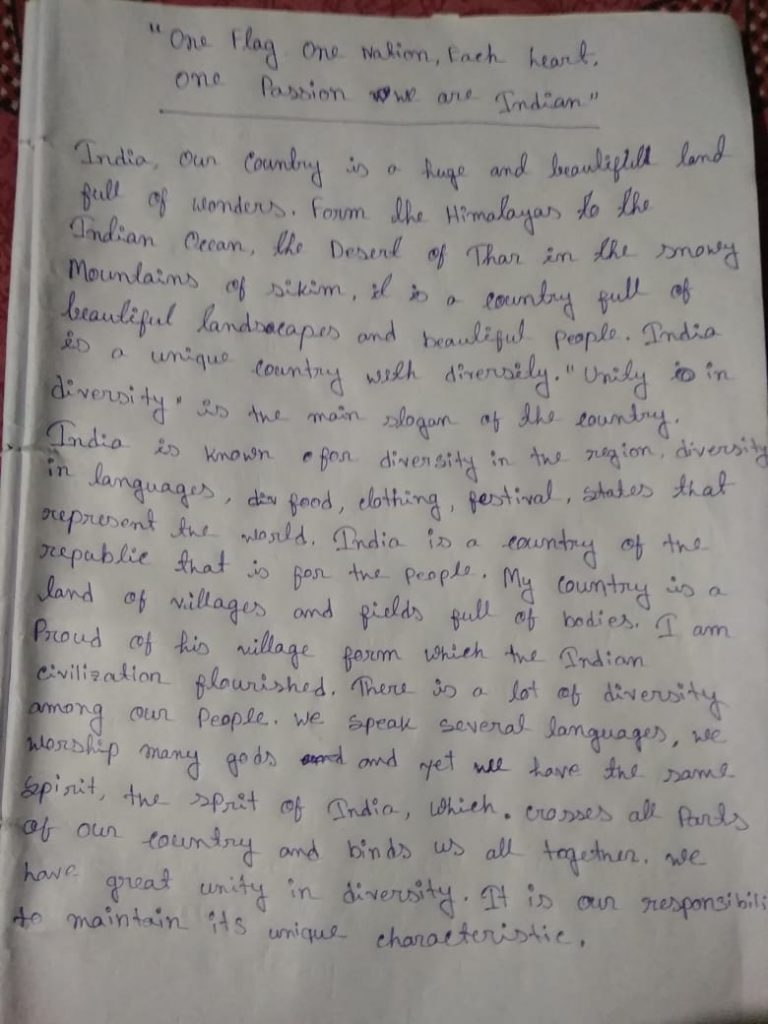 "One Flag One Nation, Each heart,
one Passion we are Indian"
India, our country is a huge and beautifull land
full of wonders. Form the Himalayas to the
Indian Occan, the Desert of Thar in the snowy
Mountains of sikim, it is a country full of
beautiful landscapes and beautiful people. India
is a unique country with diversity. "Unity in
diversity" is the main slogan of the country.
India is known for diversity in the region, diversity
in languages, food, clothing, festival, states that
represent the world. India is a country of the
republic that is for the people. My country is a
land of villages and fields full of bodies. I am
Proud of his village form which the Indian
civilization flourished. There is a lot of diversity
among our people. We speak several languages, we
worship many gods and yet we have the same
spirit, the sprit of India, which. crosses all Parts
of our country and binds us all together. we
have great unity in diversity. It is our responsibili
to maintain its unique characteristic.